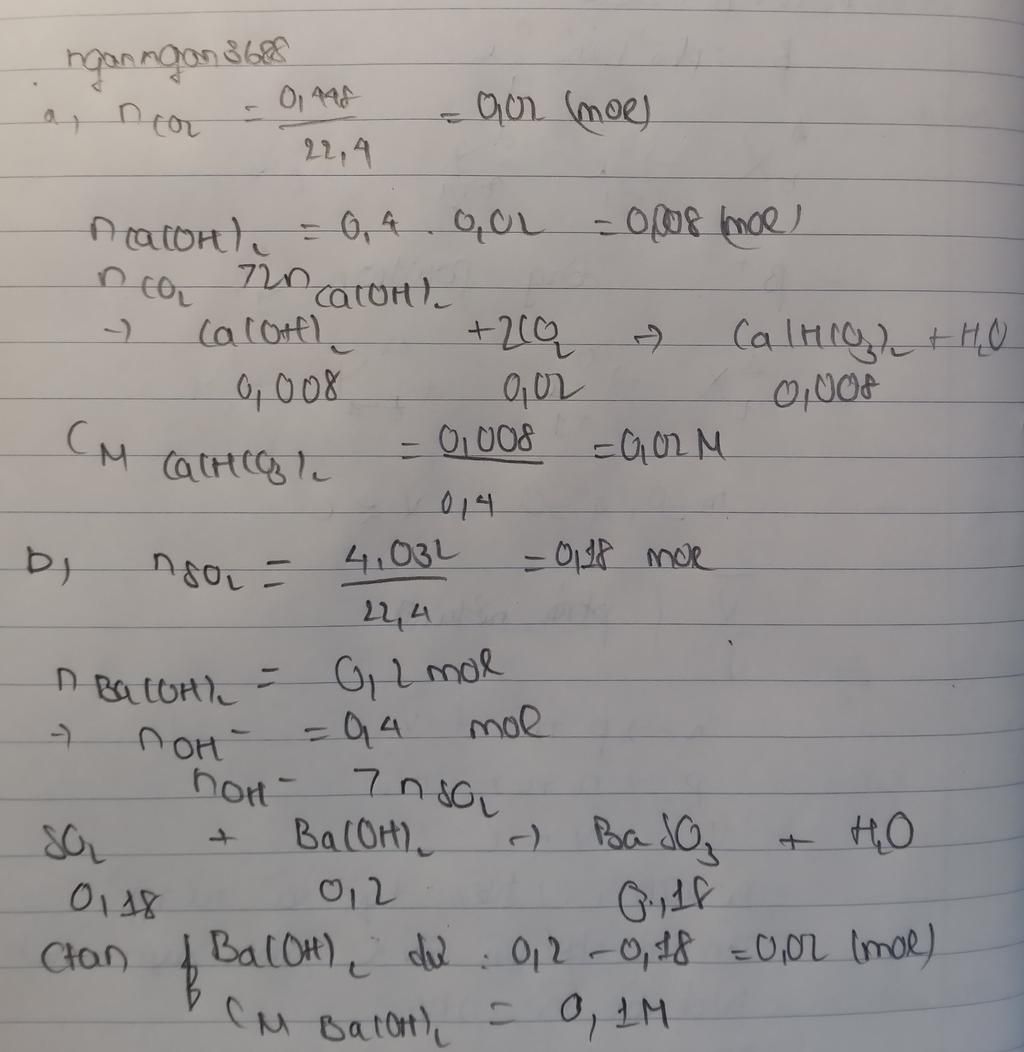 nganngan3688
a, nCO2 = 0,448 / 22,4 = 0,02 (mol)
nCa(OH)2 = 0,4 . 0,02 = 0,008 (mol)
nCO2 > 2nCa(OH)2
→ Ca(OH)2 + 2CO2 → Ca(HCO3)2 + H2O
0,008 0,02 0,008
CM Ca(HCO3)2 = 0,008 / 0,4 = 0,02 M
b, nSO2 = 4,032 / 22,4 = 0,18 mol
nBa(OH)2 = 0,2 mol
→ nOH- = 0,4 mol
nOH- > nSO2
SO2 + Ba(OH)2 → BaSO3 + H2O
0,18 0,2 0,18
Ctan Ba(OH)2 dư : 0,2 - 0,18 = 0,02 (mol)
CM Ba(OH)2 = 0,1M